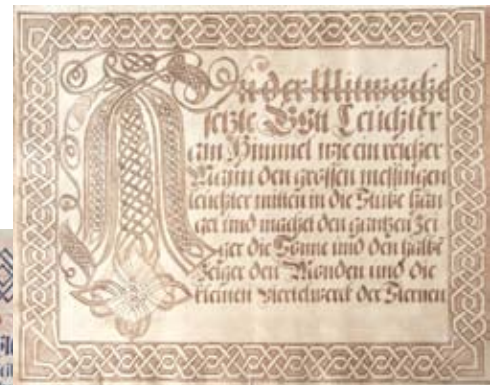 An der Mitwoche
setzte Gott Leuchter
am Himmel wie ein reicher
Mann den grossen messingen
leuchter mitten in die Stube han
get und machet den gantzen Zei
ger die Sonne und den halbe
Zeiger den Monden und die
kleinen viertelwerck der Sternen